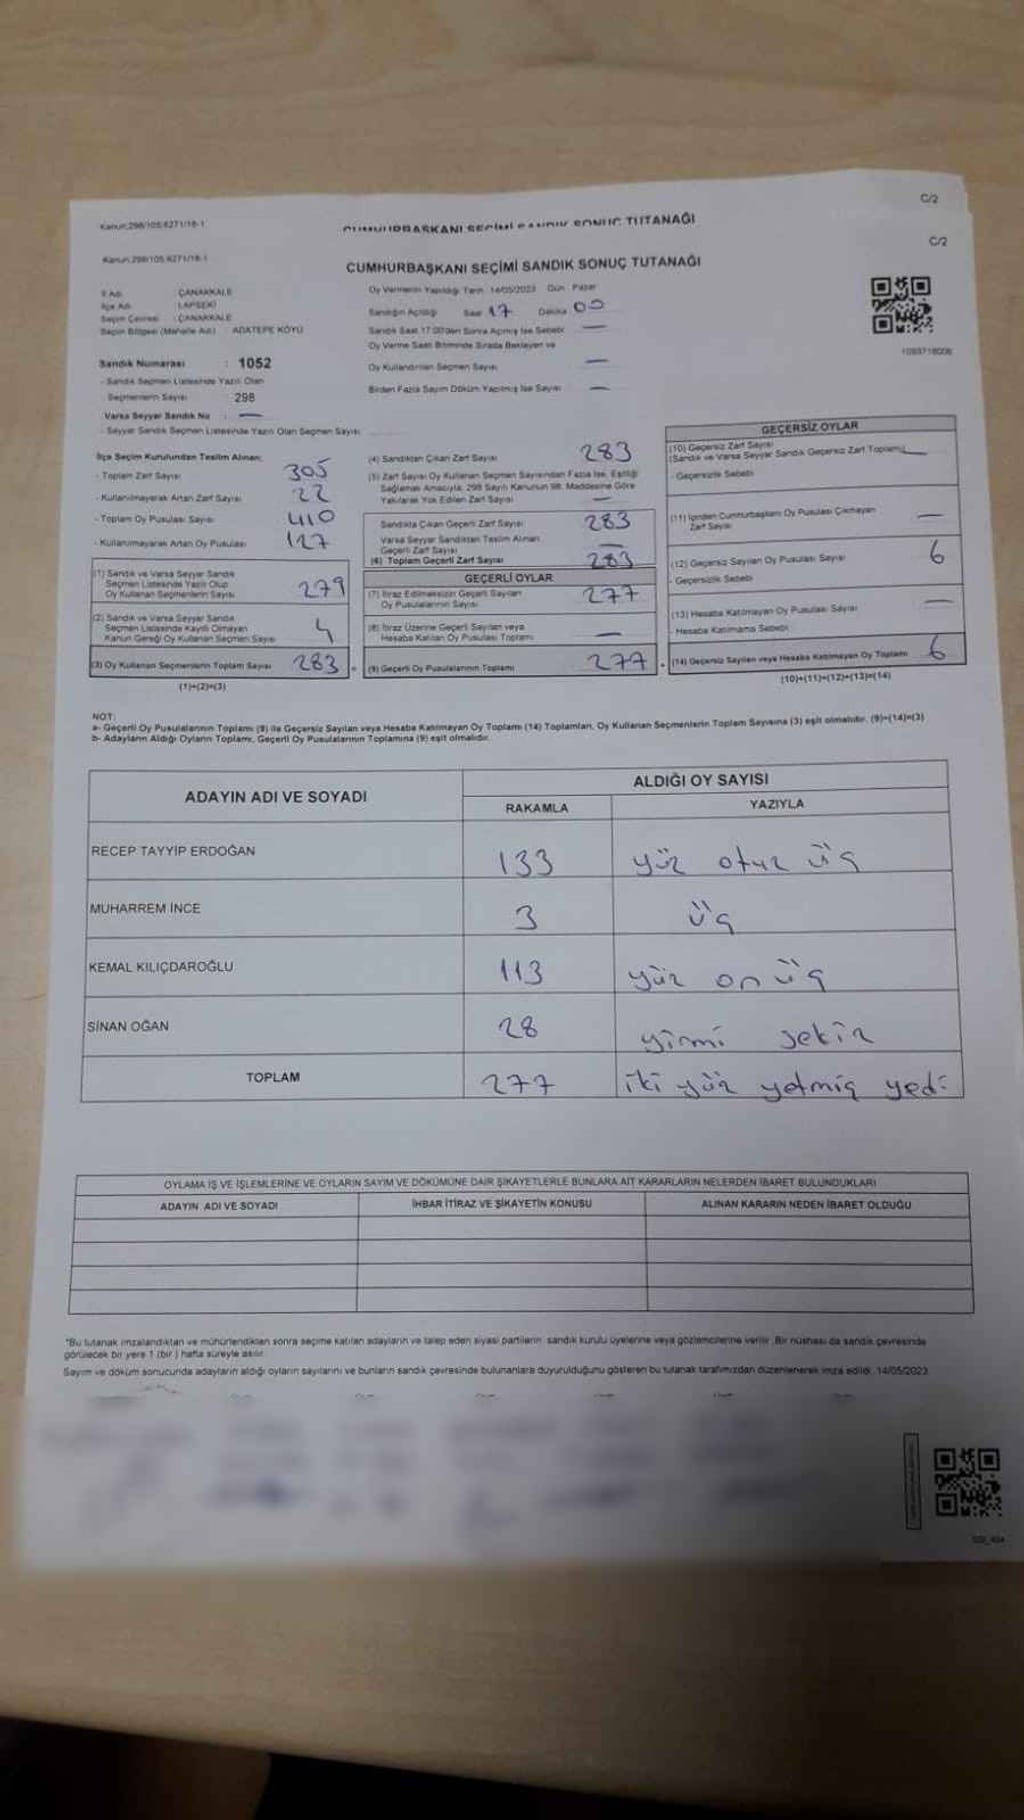 Kanun:298/105:6271/16-1
C/2
CUMHURBAŞKANI SEÇİMİ SANDIK SONUÇ TUTANAĞI
Kanun:298/105:6271/16-1
C/2
CUMHURBAŞKANI SEÇİMİ SANDIK SONUÇ TUTANAĞI
İl Adı : ÇANAKKALE
İlçe Adı : LAPSEKİ
Seçim Çevresi : ÇANAKKALE
Seçim Bölgesi (Mahalle Adı) : ADATEPE KÖYÜ
Oy Vermenin Yapıldığı Tarih 14/05/2023 Gün Pazar
Sandığın Açıldığı Saat 17 Dakika 00
Sandık Saat 17:00'den Sonra Açılmış İse Sebebi —
Oy Verme Saati Bitiminde Sırada Bekleyen ve
Oy Kullandırılan Seçmen Sayısı —
Birden Fazla Sayım Döküm Yapılmış İse Sayısı —
Sandık Numarası : 1052
- Sandık Seçmen Listesinde Yazılı Olan
Seçmenlerin Sayısı 298
Varsa Seyyar Sandık No : —
- Seyyar Sandık Seçmen Listesinde Yazılı Olan Seçmen Sayısı
İlçe Seçim Kurulundan Teslim Alınan;
- Toplam Zarf Sayısı 305
- Kullanılmayarak Artan Zarf Sayısı 22
- Toplam Oy Pusulası Sayısı 410
- Kullanılmayarak Artan Oy Pusulası 127
(1) Sandık ve Varsa Seyyar Sandık
Seçmen Listesinde Yazılı Olup
Oy Kullanan Seçmenlerin Sayısı 279
(2) Sandık ve Varsa Seyyar Sandık
Seçmen Listesinde Kayıtlı Olmayan
Kanun Gereği Oy Kullanan Seçmen Sayısı 4
(3) Oy Kullanan Seçmenlerin Toplam Sayısı 283
(1)+(2)=(3)
(4) Sandıktan Çıkan Zarf Sayısı 283
(5) Zarf Sayısı Oy Kullanan Seçmen Sayısından Fazla İse, Eşitliği
Sağlamak Amacıyla, 298 Sayılı Kanunun 98. Maddesine Göre
Yakılarak Yok Edilen Zarf Sayısı —
Sandıkta Çıkan Geçerli Zarf Sayısı 283
Varsa Seyyar Sandıktan Teslim Alınan
Geçerli Zarf Sayısı —
(6) Toplam Geçerli Zarf Sayısı 283
GEÇERLİ OYLAR
(7) İtiraz Edilmeksizin Geçerli Sayılan
Oy Pusulalarının Sayısı 277
(8) İtiraz Üzerine Geçerli Sayılan veya
Hesaba Katılan Oy Pusulası Toplamı —
(9) Geçerli Oy Pusulalarının Toplamı 277
GEÇERSİZ OYLAR
(10) Geçersiz Zarf Sayısı
(Sandık ve Varsa Seyyar Sandık Geçersiz Zarf Toplamı) —
- Geçersizlik Sebebi
(11) İçinden Cumhurbaşkanı Oy Pusulası Çıkmayan
Zarf Sayısı —
(12) Geçersiz Sayılan Oy Pusulası Sayısı 6
- Geçersizlik Sebebi
(13) Hesaba Katılmayan Oy Pusulası Sayısı —
- Hesaba Katılmama Sebebi
(14) Geçersiz Sayılan veya Hesaba Katılmayan Oy Toplamı 6
(10)+(11)+(12)+(13)=(14)
NOT:
a- Geçerli Oy Pusulalarının Toplamı (9) ile Geçersiz Sayılan veya Hesaba Katılmayan Oy Toplamı (14) Toplamları, Oy Kullanan Seçmenlerin Toplam Sayısına (3) eşit olmalıdır. (9)+(14)=(3)
b- Adayların Aldığı Oyların Toplamı, Geçerli Oy Pusulalarının Toplamına (9) eşit olmalıdır.
ADAYIN ADI VE SOYADI
ALDIĞI OY SAYISI
RAKAMLA YAZIYLA
RECEP TAYYİP ERDOĞAN 133 yüz otuz üç
MUHARREM İNCE 3 üç
KEMAL KILIÇDAROĞLU 113 yüz on üç
SİNAN OĞAN 28 yirmi sekiz
TOPLAM 277 iki yüz yetmiş yedi
OYLAMA İŞ VE İŞLEMLERİNE VE OYLARIN SAYIM VE DÖKÜMÜNE DAİR ŞİKAYETLERLE BUNLARA AİT KARARLARIN NELERDEN İBARET BULUNDUKLARI
ADAYIN ADI VE SOYADI İHBAR İTİRAZ VE ŞİKAYETİN KONUSU ALINAN KARARIN NEDEN İBARET OLDUĞU
"Bu tutanak imzalandıktan ve mühürlendikten sonra seçime katılan adayların ve talep eden siyasi partilerin sandık kurulu üyelerine veya gözlemcilerine verilir. Bir nüshası da sandık çevresinde
görülecek bir yere 1 (bir ) hafta süreyle asılır.
Sayım ve döküm sonucunda adayların aldığı oyların sayılarını ve bunların sandık çevresinde bulunanlara duyurulduğunu gösteren bu tutanak tarafımızdan düzenlenerek imza edildi. 14/05/2023